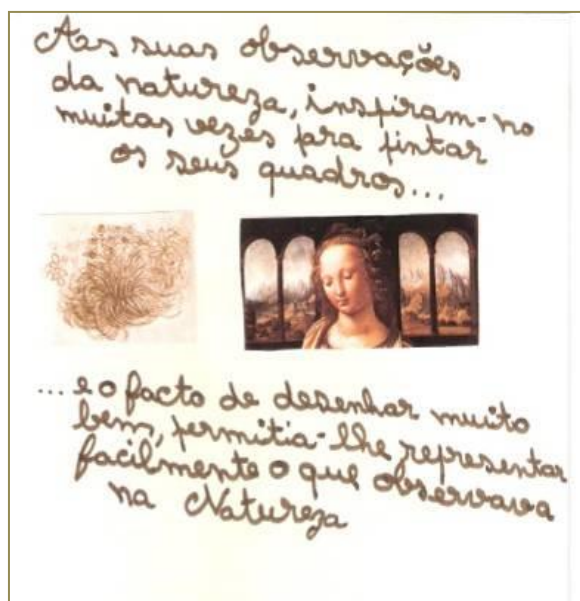 Aas suas observações
da natureza, inspiram-no
muitas vezes pra pintar
os seus quadros...
... e o facto de desenhar muito
bem, permitia-lhe representar
facilmente o que observava
na Natureza